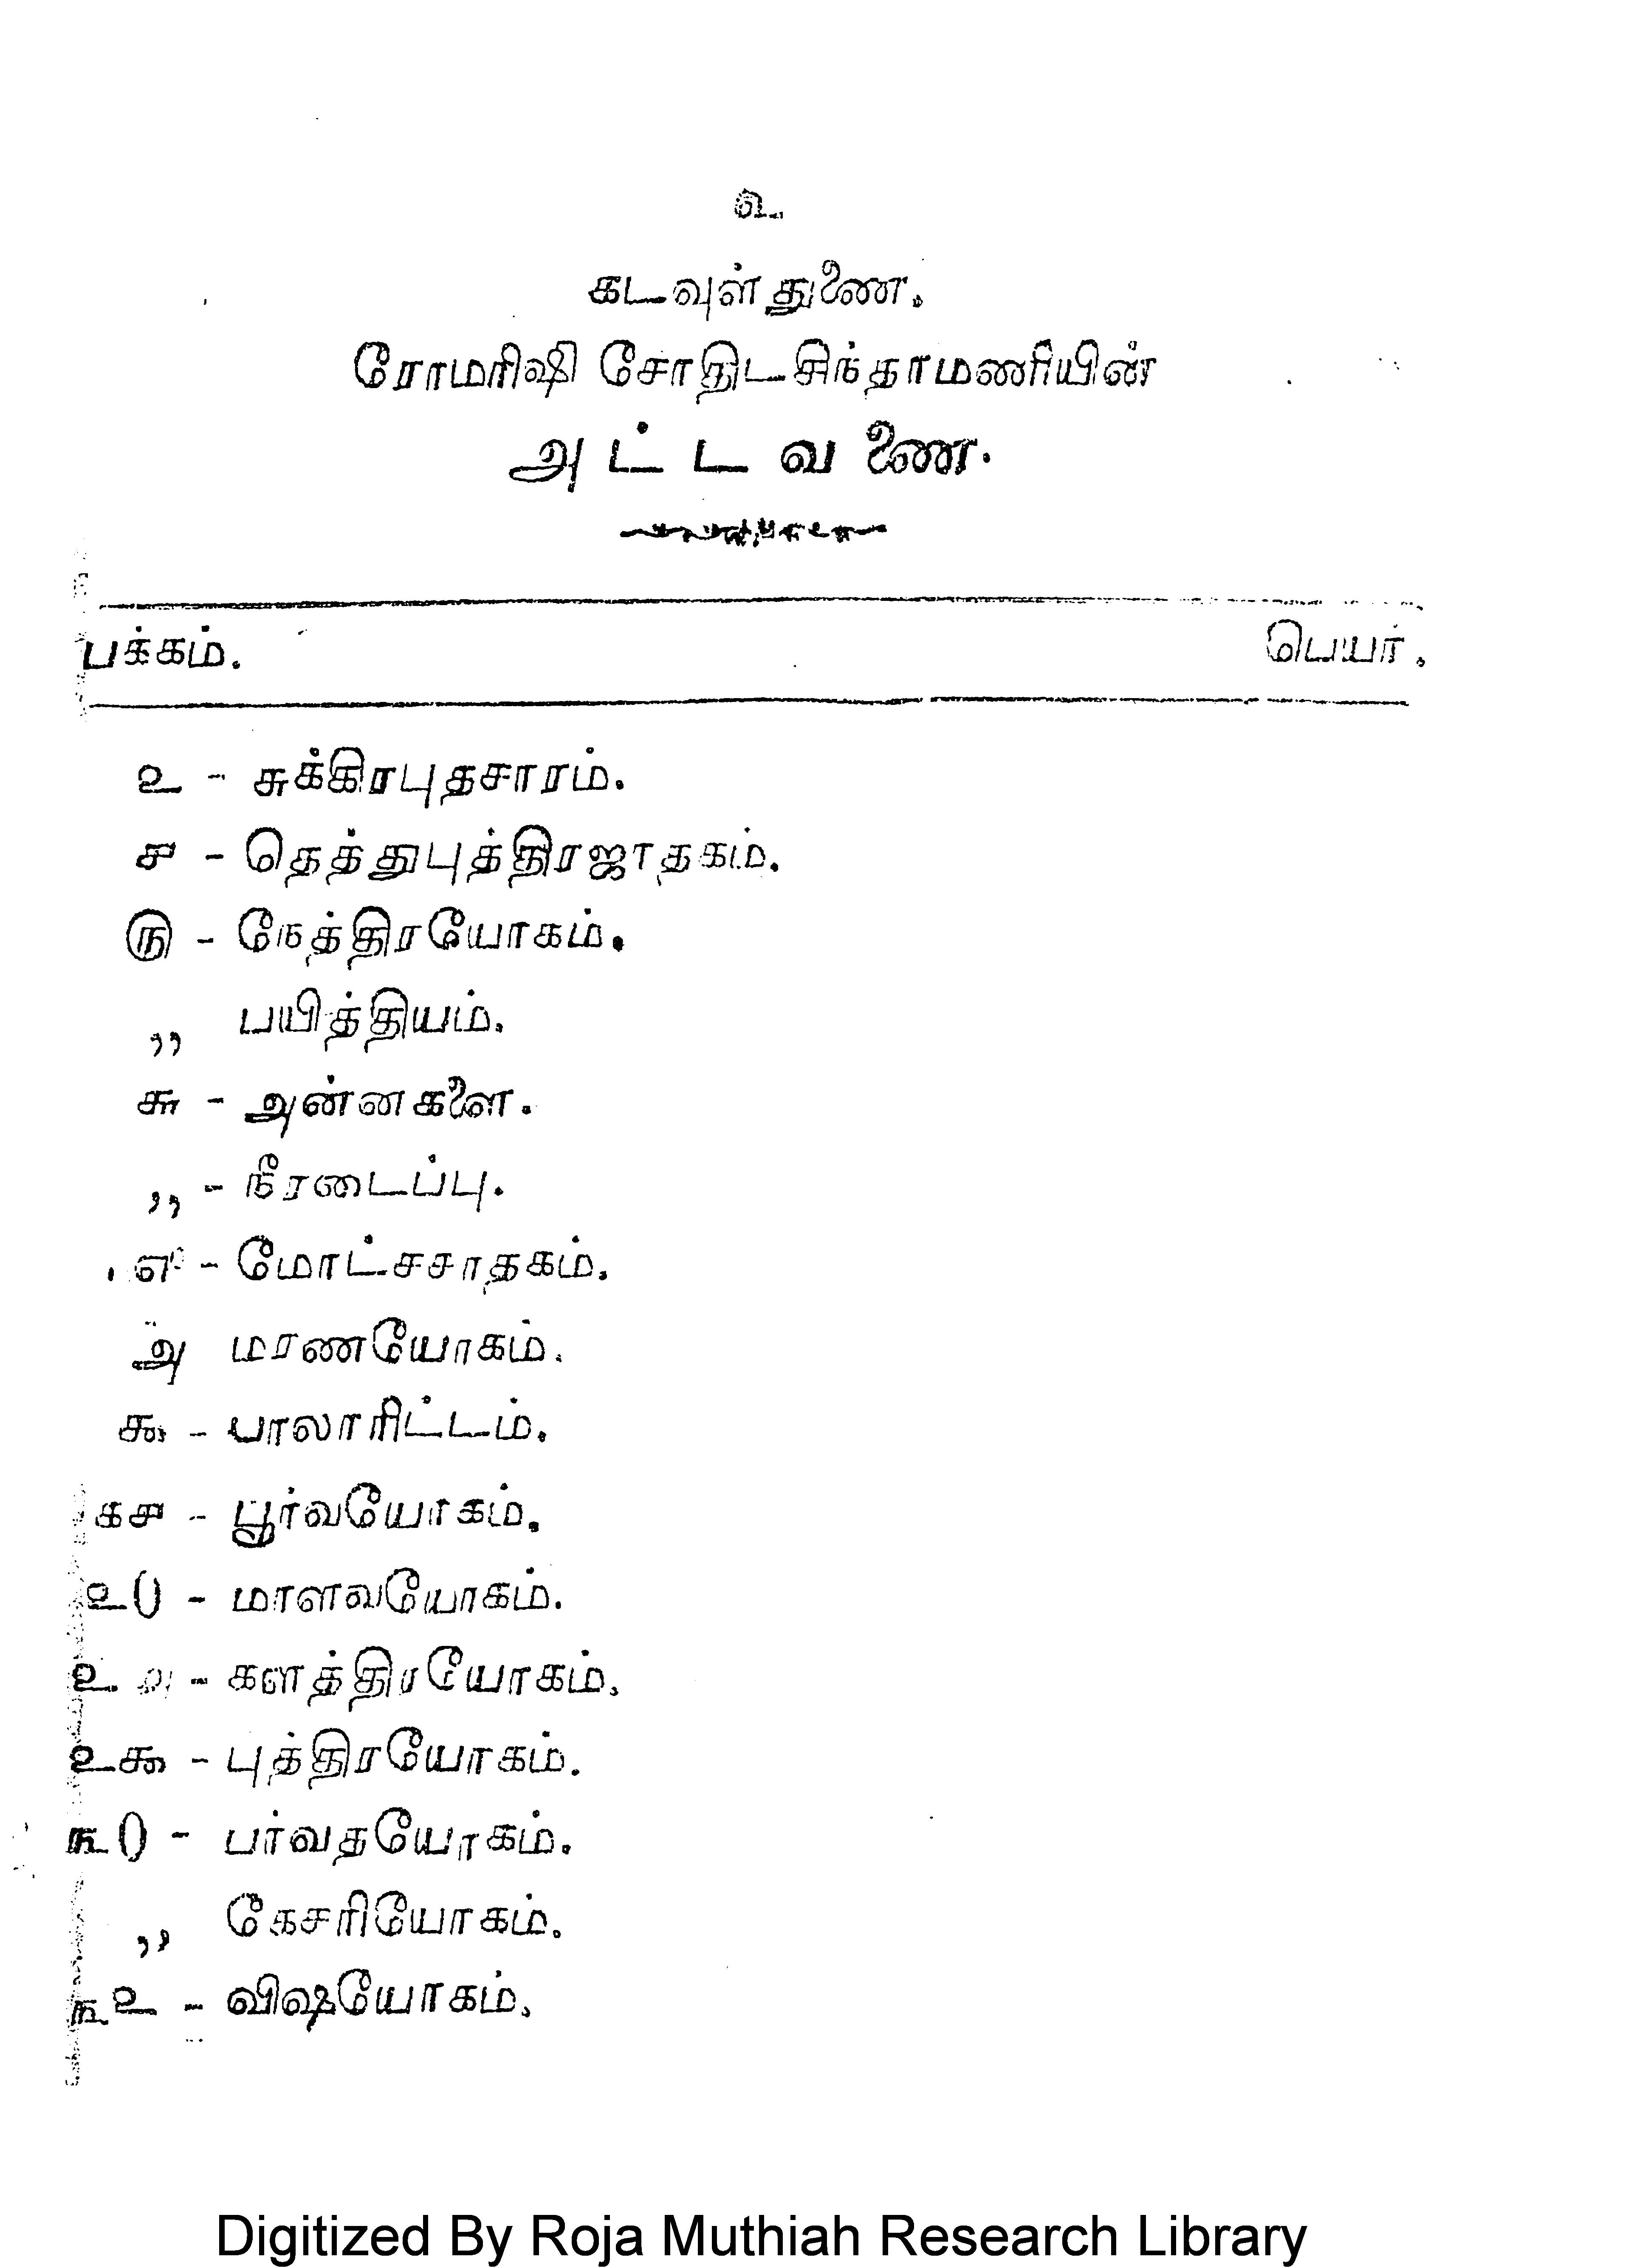 உ
கடவுள் துணை.
ரோமரிஷி சோதிடசிந்தாமணியின்
அட்டவணை.
பக்கம். பெயர்.
௨ - சுக்கிரபுதசாரம்.
௪ - தெத்துபுத்திரஜாதகம்.
௫ - நேத்திரயோகம்.
,, பயித்தியம்.
௬ - அன்னகளை.
,, - நீரடைப்பு.
௭ - மோட்சசாதகம்.
௮ மரணயோகம்.
௯ - பாலாரிட்டம்.
௧௪ - பூர்வயோகம்.
௨0 - மாளவயோகம்.
௨௮ - களத்திரயோகம்.
௨௯ - புத்திரயோகம்.
௩0 - பர்வதயோகம்.
,, கேசரியோகம்.
௩௨ - விஷயோகம்.
Digitized By Roja Muthiah Research Library